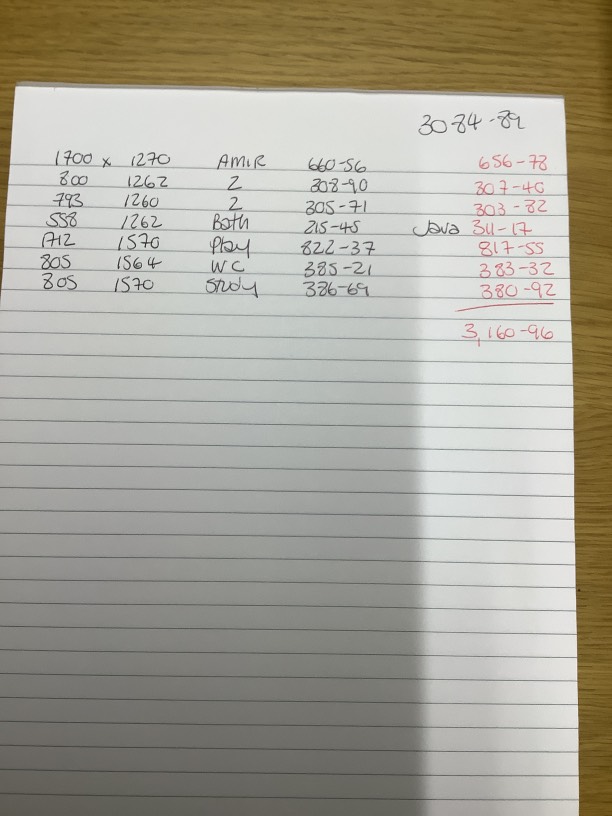 3084-89
1700 x 1270 AMIR 660-56 656-78
800 1262 2 308-90 307-40
793 1260 2 305-71 303-82
558 1262 Bath 215-45 Java 311-17
1712 1570 Play 822-37 817-55
805 1564 WC 385-21 383-32
805 1570 Study 386-69 380-92
3,160-96